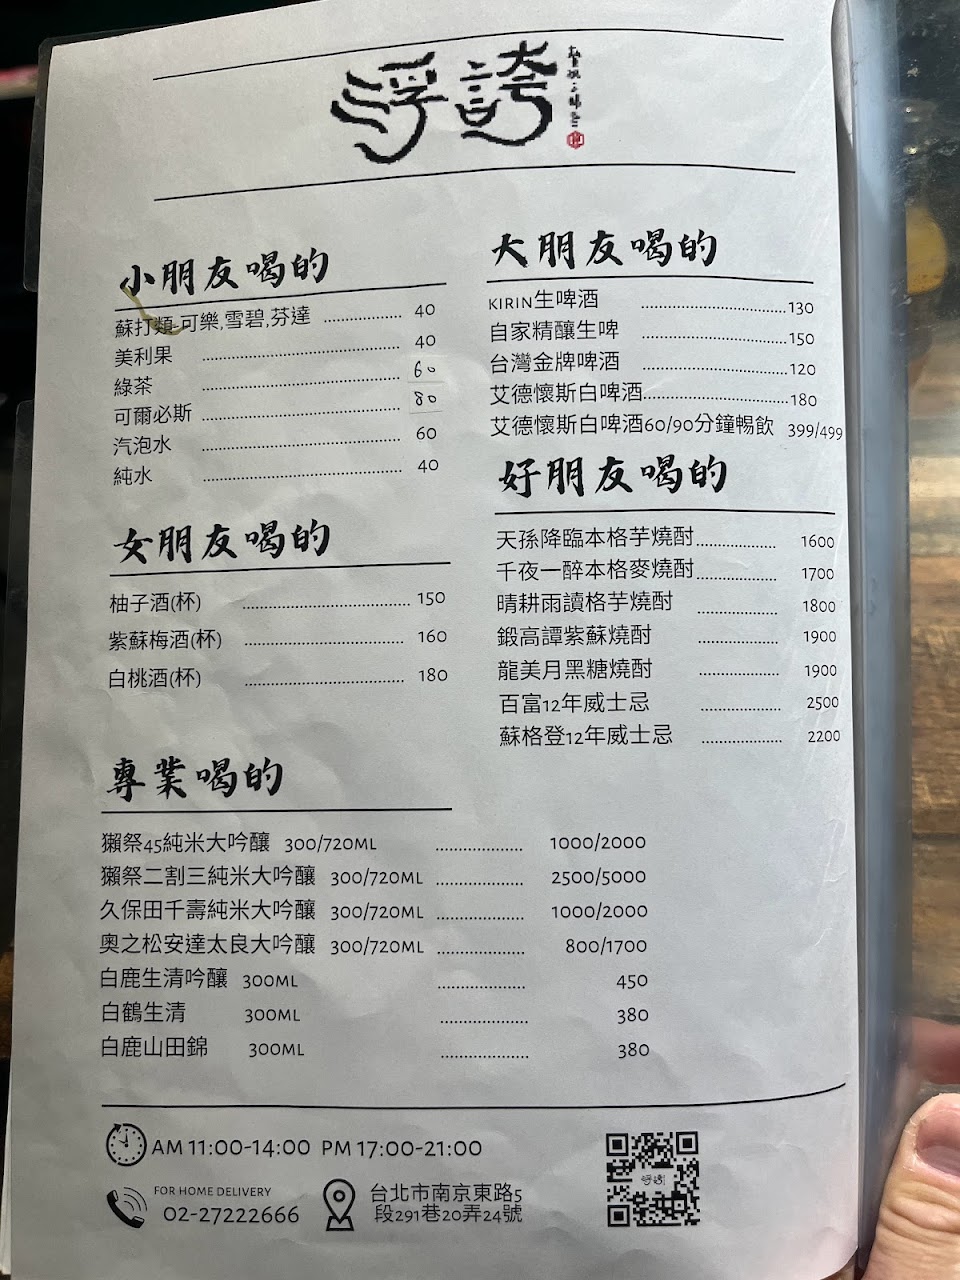 浮誇
小朋友喝的
蘇打類-可樂,雪碧,芬達 .................... 40
美利果 .................... 40
綠茶 .................... 60
可爾必斯 .................... 80
汽泡水 .................... 60
純水 .................... 40
女朋友喝的
柚子酒(杯) .................... 150
紫蘇梅酒(杯) .................... 160
白桃酒(杯) .................... 180
大朋友喝的
KIRIN生啤酒 .................... 130
自家精釀生啤 .................... 150
台灣金牌啤酒 .................... 120
艾德懷斯白啤酒 .................... 180
艾德懷斯白啤酒60/90分鐘暢飲 399/499
好朋友喝的
天孫降臨本格芋燒酎 .................... 1600
千夜一醉本格麥燒酎 .................... 1700
晴耕雨讀格芋燒酎 .................... 1800
鍛高譚紫蘇燒酎 .................... 1900
龍美月黑糖燒酎 .................... 1900
百富12年威士忌 .................... 2500
蘇格登12年威士忌 .................... 2200
專業喝的
獺祭45純米大吟釀 300/720ML .................... 1000/2000
獺祭二割三純米大吟釀 300/720ML .................... 2500/5000
久保田千壽純米大吟釀 300/720ML .................... 1000/2000
奧之松安達太良大吟釀 300/720ML .................... 800/1700
白鹿生清吟釀 300ML .................... 450
白鶴生清 300ML .................... 380
白鹿山田錦 300ML .................... 380
AM 11:00-14:00 PM 17:00-21:00
FOR HOME DELIVERY
02-27222666
台北市南京東路5
段291巷20弄24號
浮誇